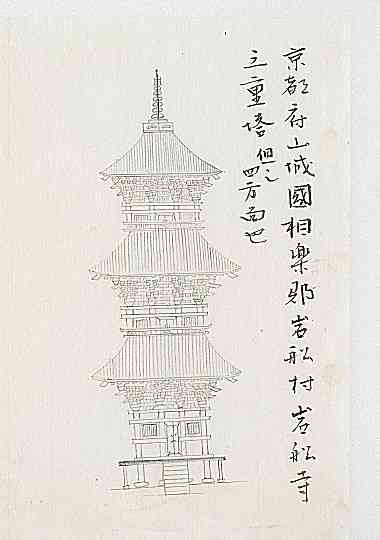 京都府山城國相楽郡岩船村岩船寺
三重塔 但之四方面也